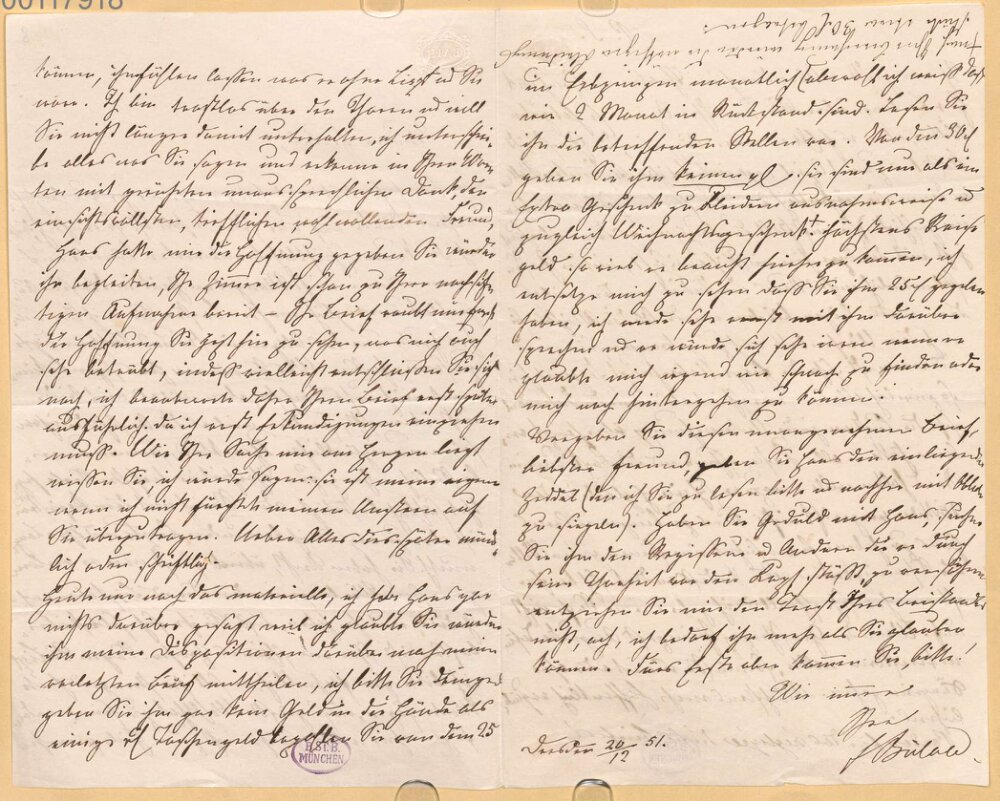 00117918
können, ihn fühlen lassen was er ohne Liszt und Sie
wäre. Ich bin trostlos über den Thoren und will
Sie nicht länger damit unterhalten, ich unterschrei-
be alles was Sie sagen und erkenne in Ihren Wor-
ten mit gerührtem unaussprechlichen Dank, den
einsichtsvollsten, trefflichen wohlwollenden Freund,
Hans hatte mir die Hoffnung gegeben Sie würden
ihn begleiten, Ihr Zimmer ist schon zu Ihrer nachsich-
tigen Aufnahme bereit – Ihr Brief raubt mir
die Hoffnung Sie jetzt hier zu sehen, was mich auch
sehr betrübt, indeß vielleicht entschließen Sie sich
noch, ich beantworte daher Ihren Brief erst später
ausführlich. da ich erst Erkundigungen einziehen
muß. Wie Ihre Sache mir am Herzen liegt
wissen Sie, ich würde sagen: sie ist meine eigene
wenn ich nicht fürchtete meinen Unstern auf
Sie überzutragen. Ueber Alles dies später münd-
lich oder schriftlich.
Heute nur noch das materielle, ich habe Hans gar
nichts darüber gesagt weil ich glaubte Sie würden
ihm meine Dispositionen darüber nach meinem
vorletzten Brief mittheilen, ich bitte Sie dringend
geben Sie ihm gar kein Geld in die Hände als
einige Taschengeld bezahlen Sie von dem 25
B.St.B.
MÜNCHEN
im Erbprinzen monatlich (obwohl ich weiß daß
wir 2 Monat im Rückstand sind. Lesen Sie
ihm die betreffenden Stellen vor. Von den 30
geben Sie ihm keinen, sie sind nur als ein
Extra Geschenk zu Kleidern ausnahmsweise u
zugleich Weihnachtsgeschenk. Höchstens Reise
geld so viel er braucht hierher zu kommen, ich
entsetze mich zu sehen daß Sie ihm 25 gegeben
haben, ich werde sehr ernst mit ihm darüber
sprechen und er würde sich sehr irren wenn er
glaubte mich irgend wie schwach zu finden oder
mich noch hintergehen zu können.
Vergeben Sie diesen unangenehmen Brief,
liebster Freund, geben Sie Hans den einliegenden
Zeddel (den ich Sie zu lesen bitte und nachher mit Oblate
zu siegeln). Haben Sie Geduld mit Hans, suchen
Sie ihm den Regisseur u Andere die er durch
seine Thorheit vor den Kopf stößt, zu versöhnen
entziehen Sie mir den Trost Ihres Beistandes
nicht, ach, ich bedarf ihn mehr als Sie glauben
können. Fürs Erste aber kommen Sie, bitte!
Wie immer
Ihre
FBülow.
Dresden 20/12 51.